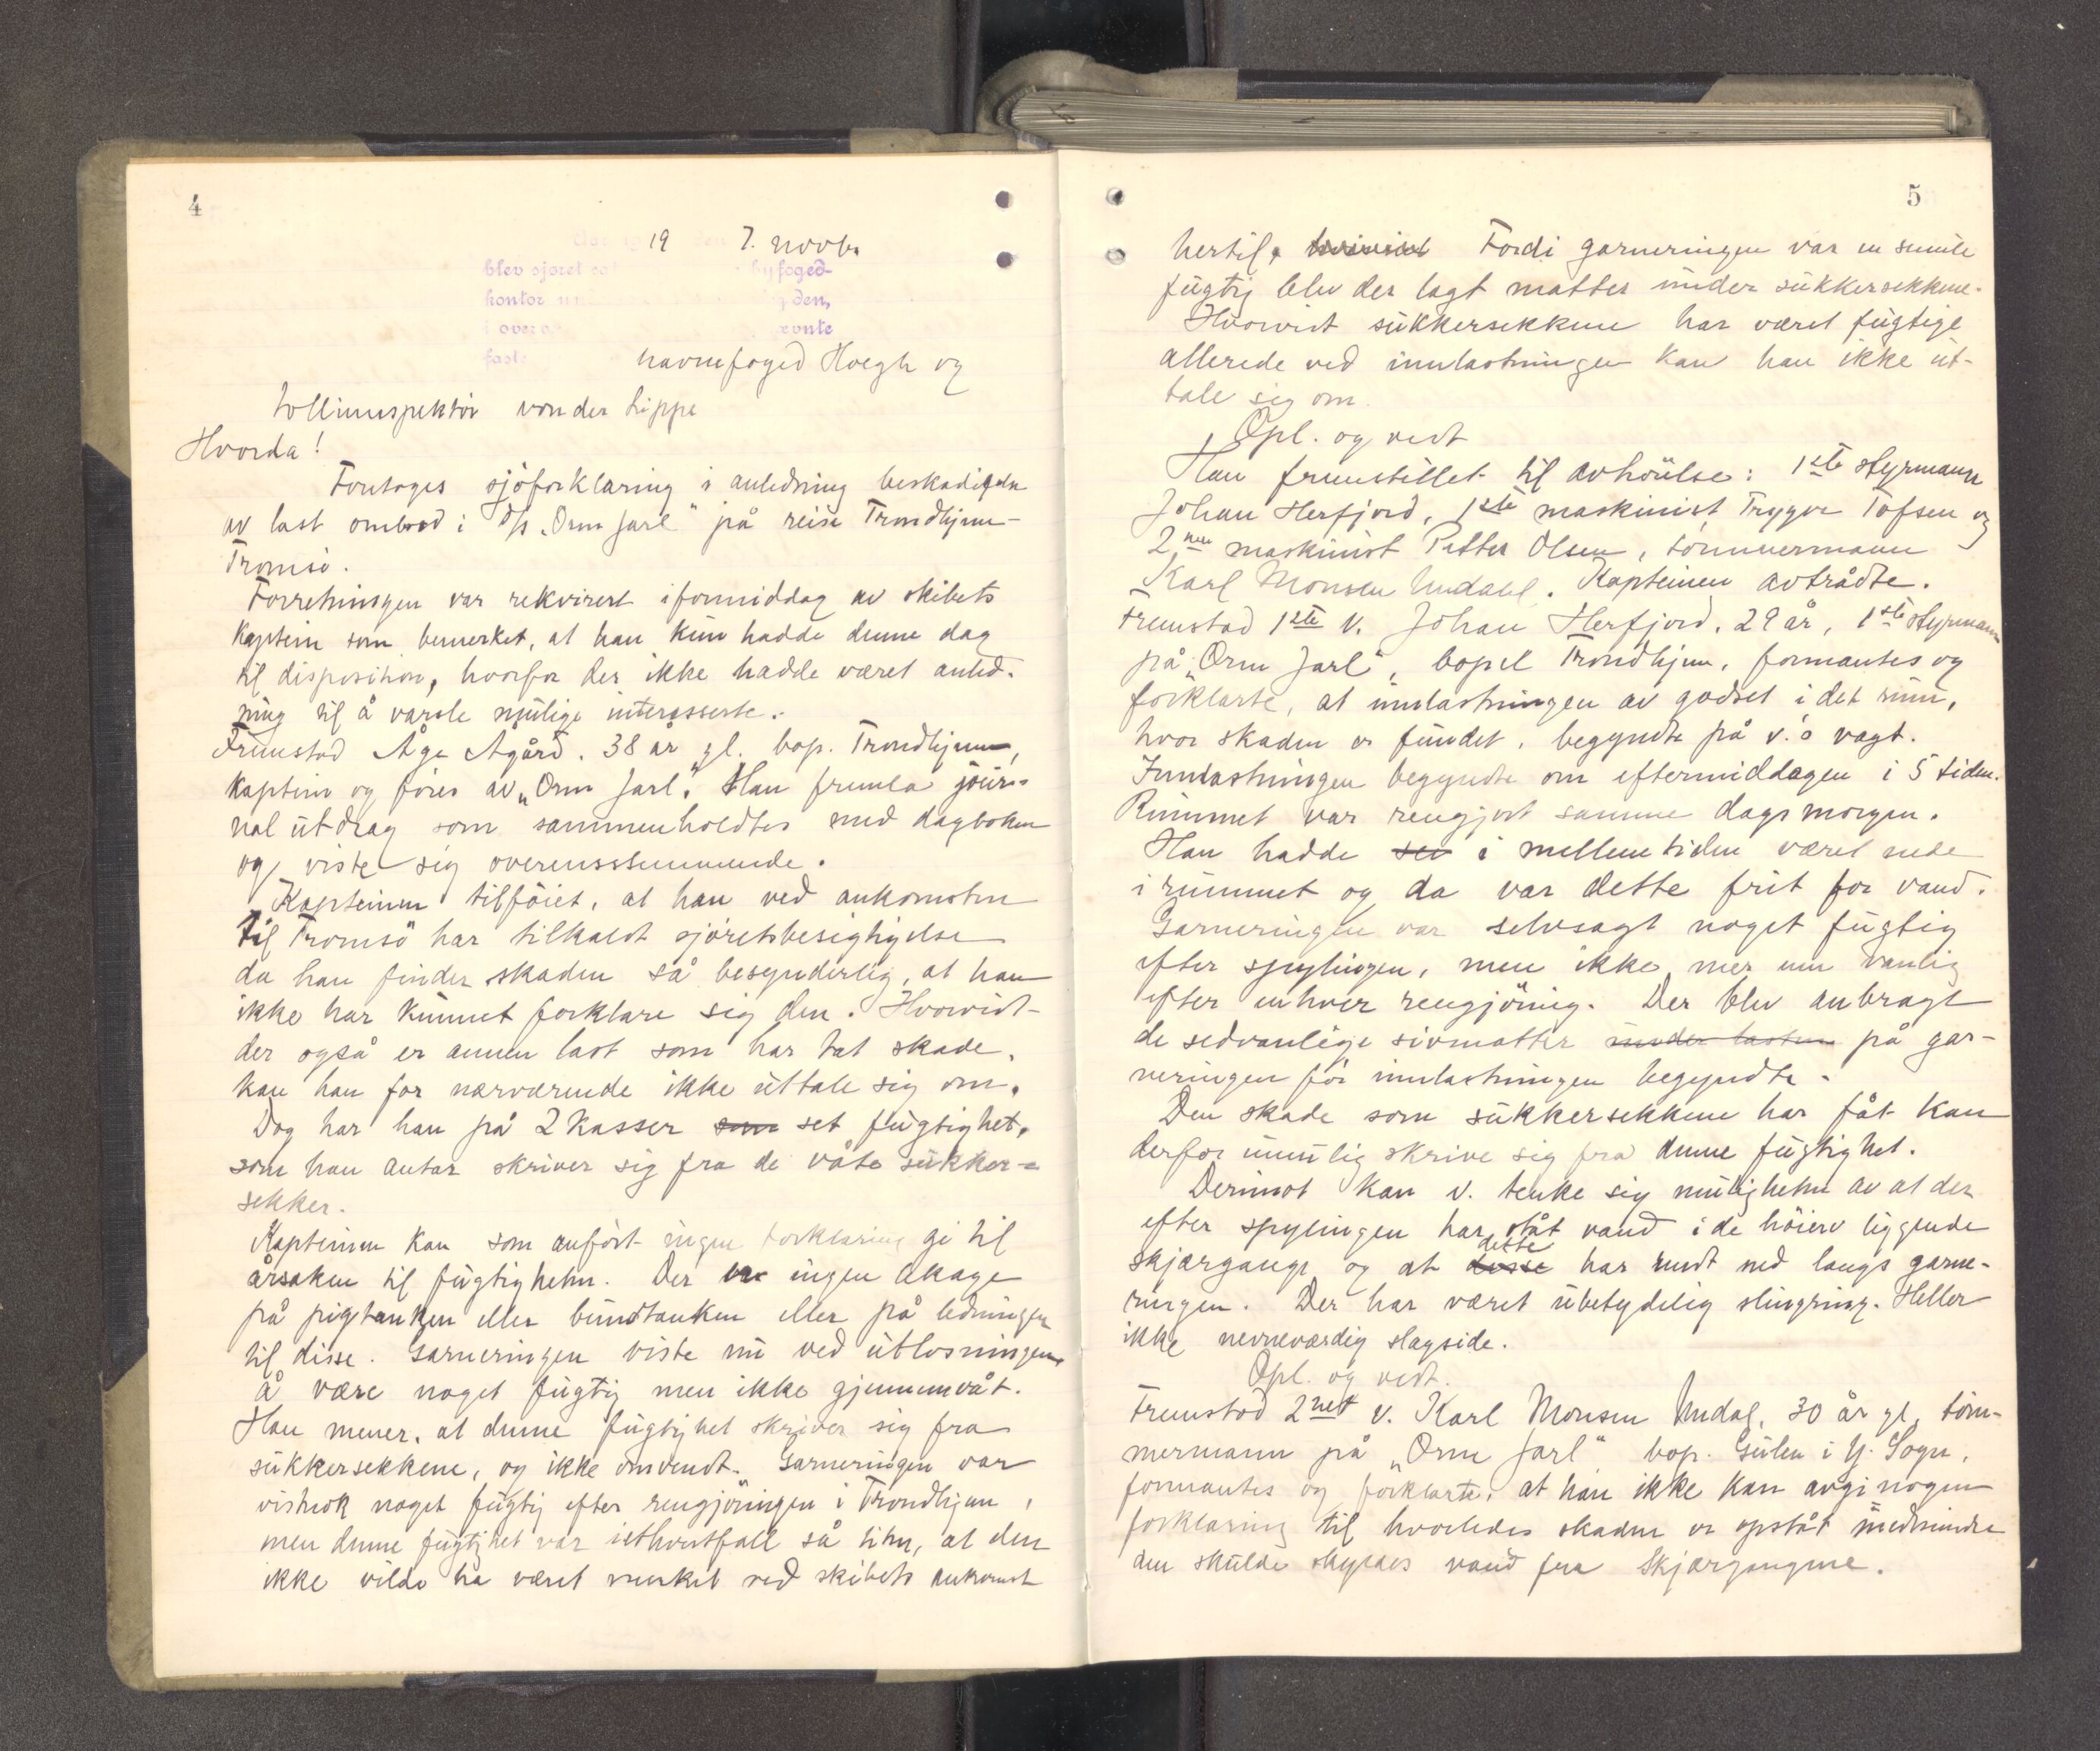 4
19 7. novb.
blev sjøret byfoged-
kontor den,
i over
faste
havnefoged Hoegh og
tollinnspektør von der Lippe
Hvorda!
Foretages sjøforklaring i anledning beskadigelse
av last ombord i D/s „Orm Jarl" på reise Trondhjem-
Tromsø.
Forretningen var rekvirert iformiddag av skibets
kaptein som bemerket, at han kun hadde denne dag
til disposition, hvorfor der ikke hadde været anled-
ning til å varsle mulige interesserte.
Fremstod Åge Agård. 38 år gl. bop. Trondhjem,
kaptein og fører av „Orm Jarl". Han fremla jour-
nal utdrag som sammenholdtes med dagboken
og viste sig overensstemmende.
Kapteinen tilføiet, at han ved ankomsten
til Tromsø har tilkaldt sjøretsbesigtigelse
da han finder skaden så besynderlig, at han
ikke har kunnet forklare sig den. Hvorvidt
der også er annen last som har tat skade,
kan han for nærværende ikke uttale sig om.
Dog har han på 2 kasser som set fugtighet,
som han antar skriver sig fra de våte sukker-
sekker.
Kapteinen kan som anført ingen forklaring gi til
årsaken til fugtigheten. Der er ingen lekage
på pigtanken eller bundtanken eller på ledningen
til disse. Garneringen viste nu ved utlosningen
å være noget fugtig men ikke gjennemvåt.
Han mener, at denne fugtighet skriver sig fra
sukkersekkene, og ikke omvendt. Garneringen var
vistnok noget fugtig efter rengjøringen i Trondhjem,
men denne fugtighet var iethvertfall så liten, at den
ikke vilde ha været merket ved skibets ankomst
5
hertil. Fordi garneringen var en smule
fugtig blev der lagt matter under sukkersekkene.
Hvorvidt sukkersekkene har været fugtige
allerede ved innlastningen kan han ikke ut-
tale sig om.
Opl. og vedt
Han fremstillet til avhørelse: 1ste styrmann
Johan Herfjord, 1ste maskinist Trygve Tofsen og
2nen maskinist Petter Olsen, tømmermann
Karl Monsen Undal. Kapteinen avtrådte.
Fremstod 1ste v. Johan Herfjord, 29 år, 1ste styrmann
på „Orm Jarl", bopel Trondhjem, formantes og
forklarte, at innlastningen av godset i det rum,
hvor skaden er fundet, begyndte på v.'s vagt.
Innlastningen begyndte om eftermiddagen i 5 tiden.
Rummet var rengjort samme dags morgen.
Han hadde sei i mellemtiden været nede
i rummet og da var dette frit for vand.
Garneringen var selvsagt noget fugtig
efter spylingen, men ikke mer enn vanlig
efter enhver rengjøring. Der blev anbragt
de sedvanlige sivmatter under lasten på gar-
neringen før innlastningen begyndte.
Den skade som sukkersekkene har fåt kan
derfor umulig skrive sig fra denne fugtighet.
Derimot kan v. tenke sig muligheten av at der
efter spylingen har ståt vand i de høiere liggende
skjærgange og at disse dette har rendt ned langs garne-
ringen. Der har været ubetydelig slingring. Heller
ikke nevneværdig slagside.
Opl. og vedt.
Fremstod 2net v. Karl Monsen Undal, 30 år gl, tøm-
mermann på „Orm Jarl" bop. Gulen i Y. Sogn,
formantes og forklarte, at han ikke kan avgi nogen
forklaring til hvorledes skaden er opståt medmindre
den skulde skyldes vand fra skjærgangene.